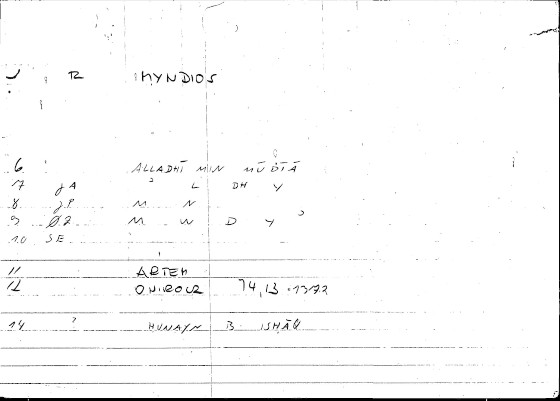 R MYNDIOS
6 ALLADHĪ MIN MŪDĪĀ
7 JA ʾ L DH Y
8 JP M N
9 02 M W D Y ʾ
10 SE
11 ARTEM
12 ONIROCR 14,13 .1372
14 ? HUNAYN B ISHĀQ